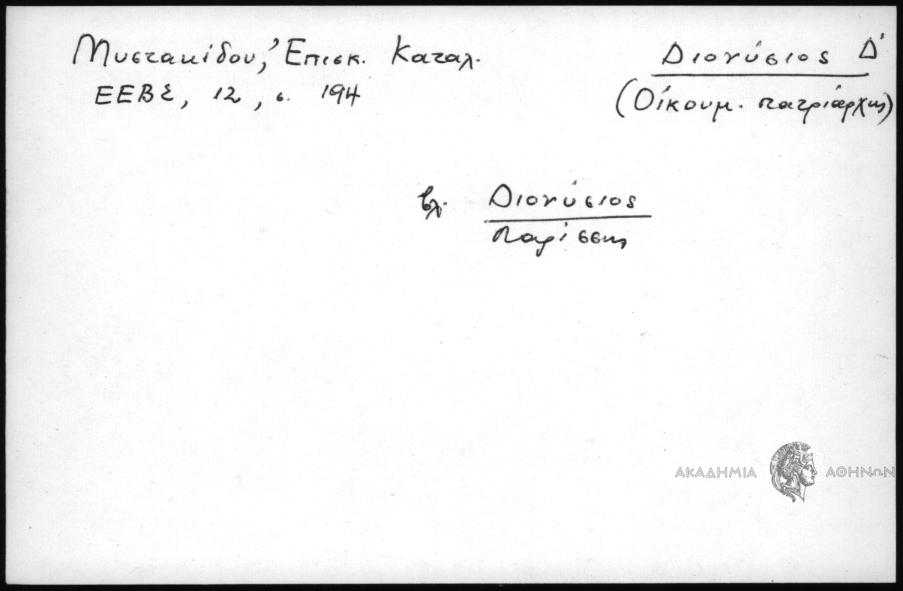 Μυστακίδου, Ἐπισκ. Καταλ.
ΕΕΒΣ, 12, σ. 194
Διονύσιος Δ'
(Οἰκουμ. πατριάρχης)
βλ. Διονύσιος
Λαρίσσης
ΑΚΑΔΗΜΙΑ ΑΘΗΝΩΝ